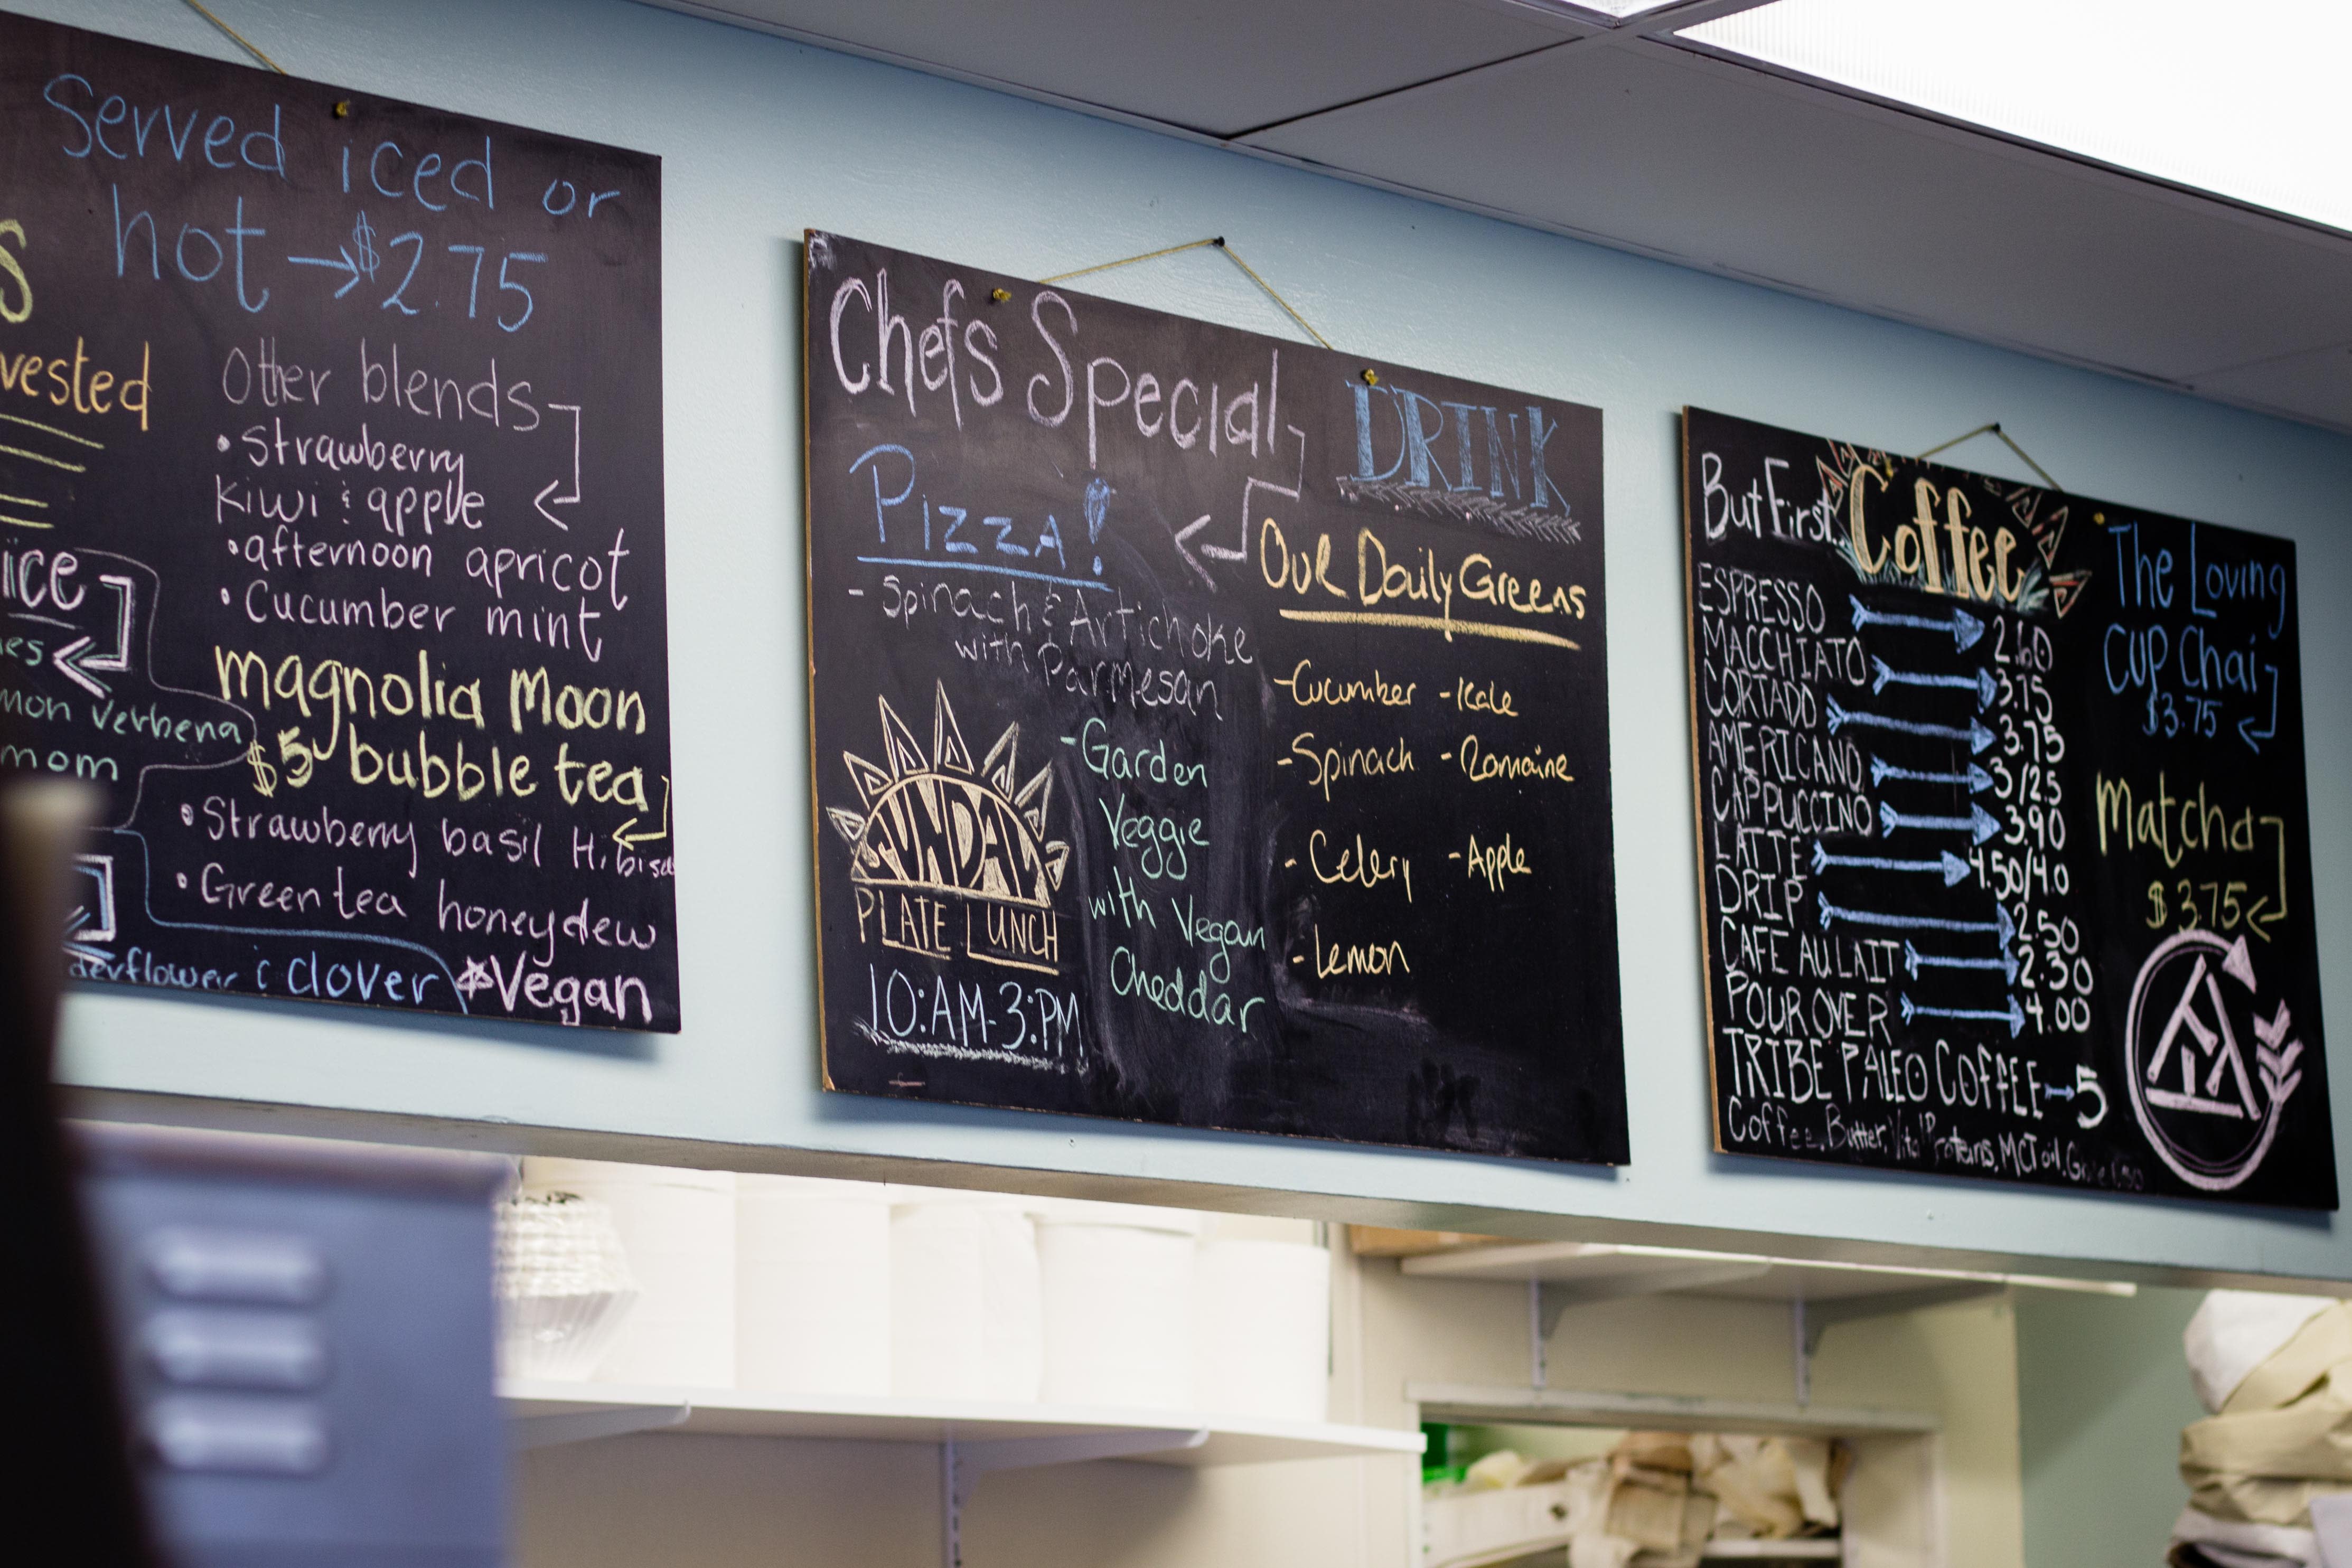 Served iced or
hot → $2.75
Other blends
• Strawberry
Kiwi & apple
• afternoon apricot
• Cucumber mint
magnolia Moon
$5 bubble tea
• Strawberry basil
• Green tea honeydew
*Vegan
Verbena
& clover
Chefs Special
PIZZA!
- Spinach & Artichoke
with Parmesan
- Garden
Veggie
with Vegan
Cheddar
SUNDAY
PLATE LUNCH
10:AM-3:PM
DRINK
Our Daily Greens
- Cucumber - Kale
- Spinach - Romaine
- Celery - Apple
- Lemon
But First... Coffee
ESPRESSO 2.60
MACCHIATO 3.75
CORTADO 3.75
AMERICANO 3/25
CAPPUCCINO 3.90
LATTE 4.50/4.0
DRIP 2.50
CAFE AU LAIT 2.30
POUR OVER 4.00
TRIBE PALEO COFFEE → 5
Coffee, Butter, Vital Proteins, MCT oil,
The Loving
Cup Chai
$3.75
Matcha
$3.75